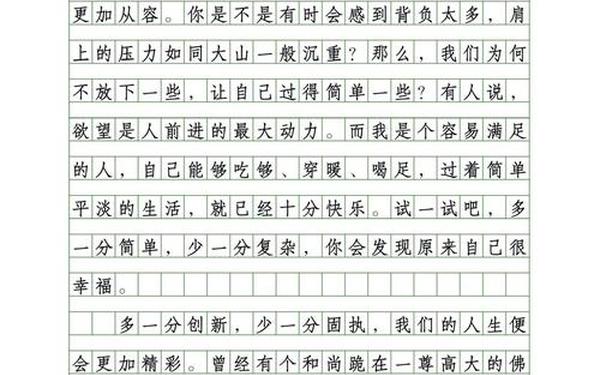 更加从容。你是不是有时会感到背负太多，肩
上的压力如同大山一般沉重？那么，我们为何
不放下一些，让自己过得简单一些？有人说，
欲望是人前进的最大动力。而我是个容易满足
的人，自己能够吃够、穿暖、喝足，过着简单
平淡的生活，就已经十分快乐。试一试吧，多
一分简单，少一分复杂，你会发现原来自己很
幸福。
多一分创新，少一分固执，我们的人生便
会更加精彩。曾经有个和尚跪在一尊高大的佛